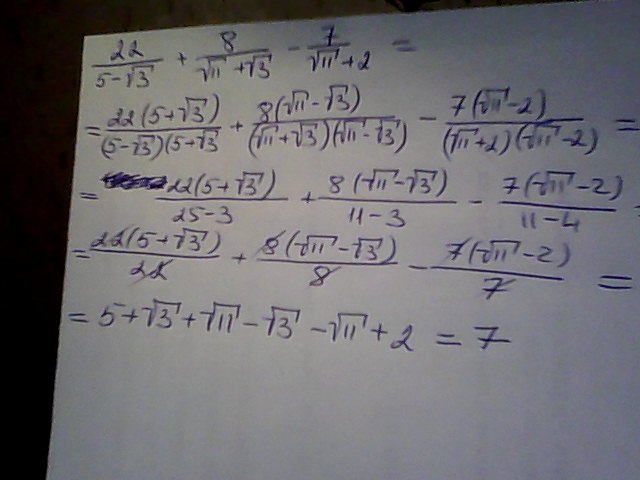 22/(5-√3) + 8/(√11+√3) - 7/(√11+2) =
= 22(5+√3)/((5-√3)(5+√3) + 8(√11-√3)/((√11+√3)(√11-√3)) - 7(√11-2)/((√11+2)(√11-2)) =
= 22(5+√3)/(25-3) + 8(√11-√3)/(11-3) - 7(√11-2)/(11-4) =
= 22(5+√3)/22 + 8(√11-√3)/8 - 7(√11-2)/7 =
= 5+√3+√11-√3-√11+2 = 7